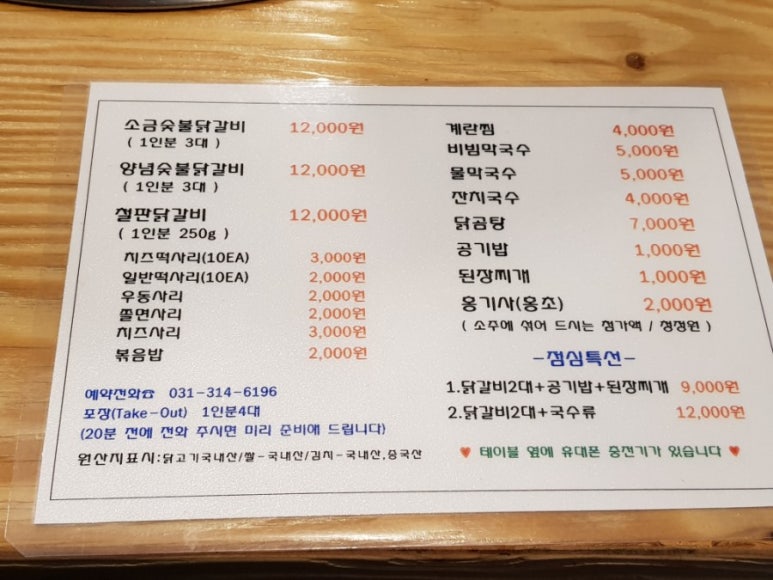 소금숯불닭갈비 12,000원
( 1인분 3대 )
양념숯불닭갈비 12,000원
( 1인분 3대 )
철판닭갈비 12,000원
( 1인분 250g )
치즈떡사리(10EA) 3,000원
일반떡사리(10EA) 2,000원
우동사리 2,000원
쫄면사리 2,000원
치즈사리 3,000원
볶음밥 2,000원
예약전화☎ 031-314-6196
포장(Take-Out) 1인분4대
(20분 전에 전화 주시면 미리 준비해 드립니다)
원산지표시:닭고기국내산/쌀-국내산/김치-국내산,중국산
계란찜 4,000원
비빔막국수 5,000원
물막국수 5,000원
잔치국수 4,000원
닭곰탕 7,000원
공기밥 1,000원
된장찌개 1,000원
홍기사(홍초) 2,000원
( 소주에 섞어 드시는 첨가액 / 청정원 )
-점심특선-
1.닭갈비2대+공기밥+된장찌개 9,000원
2.닭갈비2대+국수류 12,000원
♥ 테이블 옆에 휴대폰 충전기가 있습니다 ♥